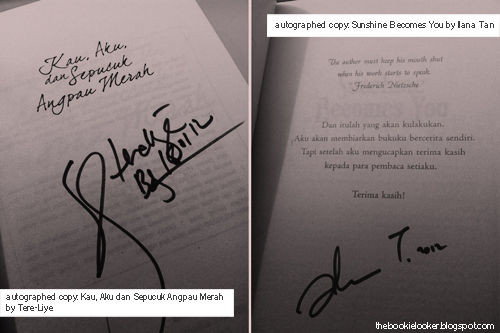 Kau, Aku,
dan Sepucuk
Angpau Merah
autographed copy: Kau, Aku dan Sepucuk Angpau Merah
by Tere-Liye
autographed copy: Sunshine Becomes You by Ilana Tan
The author must keep his mouth shut
when his work starts to speak.
Frederich Nietzsche
Dan itulah yang akan kulakukan.
Aku akan membiarkan bukuku bercerita sendiri.
Tapi setelah aku mengucapkan terima kasih
kepada para pembaca setiaku.
Terima kasih!
T. 2012
thebookielooker.blogspot.com